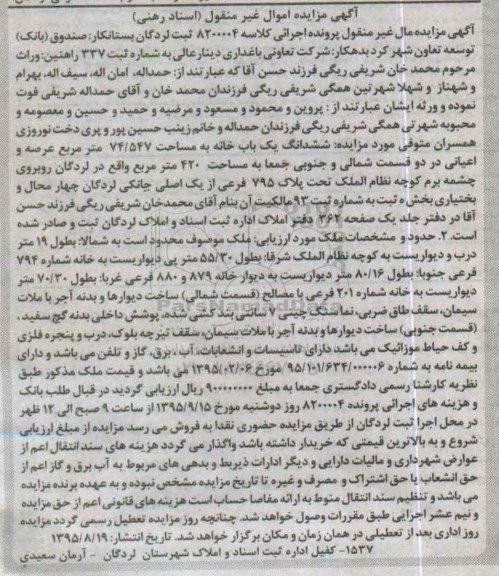 آگهی مزایده اموال غیر منقول (اسناد رهنی)
آگهی مزایده مال غیر منقول پرونده اجرائی کلاسه ۸۲۰۰۰۰۴ ثبت لردگان بستانکار: صندوق (بانک)
توسعه تعاون شهر کرد بدهکار: شرکت تعاونی باغداری دینار عالی به شماره ثبت ۳۳۷ راهنین: وراث
مرحوم محمد خان شریفی ریگی فرزند حسن آقا که عبارتند از: حمداله، امان اله، سیف اله، بهرام
و شهناز و شهلا شهرتین همگی شریفی ریگی فرزندان محمد خان و آقای حمداله شریفی فوت
نموده و ورثه ایشان عبارتند از: پروین و محمود و مسعود و مرضیه و حمید و حسین و معصومه و
محبوبه شهرتی همگی شریفی ریگی فرزندان حمداله و خانم زینب حسین پور و پری دخت نوروزی
همسران متوفی مورد مزایده: ششدانگ یک باب خانه به مساحت ۷۴/۵۴۷ متر مربع عرصه و
اعیانی در دو قسمت شمالی و جنوبی جمعا به مساحت ۴۲۰ متر مربع واقع در لردگان روبروی
چشمه برم کوچه نظام الملک تحت پلاک ۷۹۵ فرعی از یک اصلی جانکی لردگان چهار محال و
بختیاری بخش ۵ ثبت به شماره ثبت ۹۳ مالکیت آن بنام آقای محمدخان شریفی ریگی فرزند حسن
آقا در دفتر جلد یک صفحه ۳۶۲ دفتر املاک اداره ثبت اسناد و املاک لردگان ثبت و صادر شده
است. ۲. حدود و مشخصات ملک مورد ارزیابی: ملک موصوف محدود است به شمالا: بطول ۱۹ متر
درب و دیواریست به کوچه نظام الملک شرقا: بطول ۵۵/۳۰ متر پی دیواریست به خانه شماره ۷۹۴
فرعی جنوبا: بطول ۸۰/۱۶ متر دیواریست به دیوار خانه ۸۷۹ و ۸۸۰ فرعی غربا: بطول ۷۰/۳۰ متر
دیواریست به خانه شماره ۲۰۱ فرعی با مصالح (قسمت شمالی) ساخت دیوارها و بدنه آجر با ملات
سیمان، سقف طاق ضربی، نما سنگ چینی ۷ سانتی بند کشی شده، پوشش داخلی بدنه گچ سفید.
(قسمت جنوبی) ساخت دیوارها و بدنه آجر با ملات سیمان، سقف تیرچه بلوک، درب و پنجره فلزی
و کف حیاط موزائیک می باشد دارای تاسیسات و انشعابات، آب، برق، گاز و تلفن می باشد و دارای
بیمه نامه به شماره ۹۵/۱۰۱/۶۳۴/۰۰۰۰۰۶ مورخ ۱۳۹۵/۰۲/۰۶ می باشد و قیمت ملک مذکور طبق
نظریه کارشنا رسمی دادگستری جمعا به مبلغ ۹۰۰۰۰۰۰۰۰ ریال ارزیابی گردید در قبال طلب بانک
و هزینه های اجرائی پرونده ۸۲۰۰۰۰۴ روز دوشنبه مورخ ۱۳۹۵/۹/۱۵ از ساعت ۹ صبح الی ۱۲ ظهر
در محل اجرا ثبت لردگان از طریق مزایده حضوری نقدا به فروش می رسد مزایده از مبلغ ارزیابی
شروع و به بالاترین قیمتی که خریدار داشته باشد واگذار می گردد هزینه های سند انتقال اعم از
عوارض شهرداری و مالیات دارایی و دیگر ادارات ذیربط و بدهی های مربوط به آب برق و گاز اعم از
حق انشعاب یا حق اشتراک و مصرف و غیره تا تاریخ مزایده مشخص نبوده و به عهده برنده مزایده
می باشد و تنظیم سند انتقال منوط به ارائه مفاصا حساب است هزینه های قانونی اعم از حق مزایده
و نیم عشر اجرایی طبق مقررات وصول خواهد شد. چنانچه روز مزایده تعطیل رسمی گردد مزایده
روز اداری بعد از تعطیلی در همان زمان و مکان برگزار خواهد شد. تاریخ انتشار: ۱۳۹۵/۸/۱۹
۱۵۳۷- کفیل اداره ثبت اسناد و املاک شهرستان لردگان - آرمان سعیدی